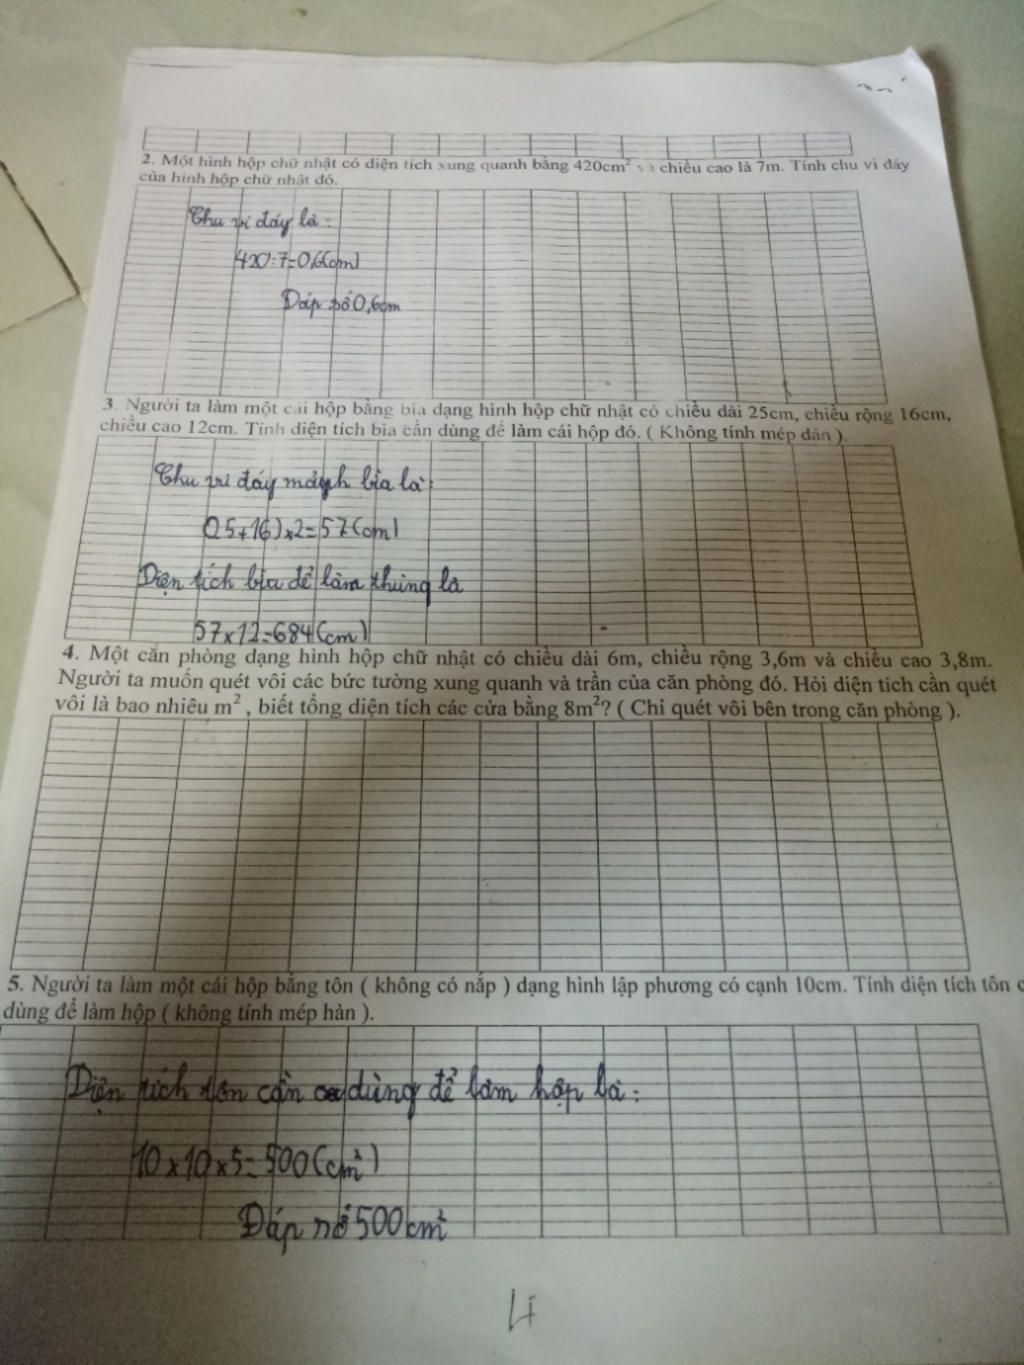 2. Một hình hộp chữ nhật có diện tích xung quanh bằng 420cm² và chiều cao là 7m. Tính chu vi đáy
của hình hộp chữ nhật đó.
Chu vi đáy là:
420:7=0,6(cm)
Đáp số 0,6cm
3. Người ta làm một cái hộp bằng bìa dạng hình hộp chữ nhật có chiều dài 25cm, chiều rộng 16cm,
chiều cao 12cm. Tính diện tích bìa cần dùng để làm cái hộp đó. ( Không tính mép dán ).
Chu vi đáy mảnh bìa là:
(25+16)x2=57(cm)
Diện tích bìa để làm thùng là
57x12=684(cm)
4. Một căn phòng dạng hình hộp chữ nhật có chiều dài 6m, chiều rộng 3,6m và chiều cao 3,8m.
Người ta muốn quét vôi các bức tường xung quanh và trần của căn phòng đó. Hỏi diện tích cần quét
vôi là bao nhiêu m², biết tổng diện tích các cửa bằng 8m²? ( Chỉ quét vôi bên trong căn phòng ).
5. Người ta làm một cái hộp bằng tôn ( không có nắp ) dạng hình lập phương có cạnh 10cm. Tính diện tích tôn c
dùng để làm hộp ( không tính mép hàn ).
Diện tích tôn cần dùng để làm hộp là:
10x10x5=500(cm²)
Đáp số 500cm²